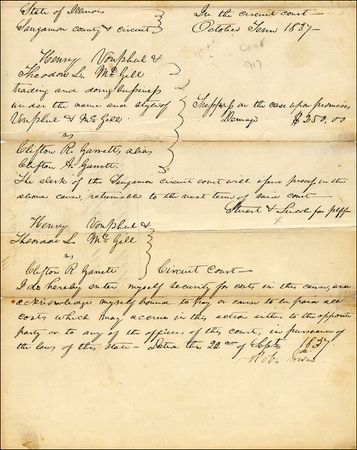 State of Illinois
Sangamon county & circuit
In the circuit court
October Term 1837
Henry Vonphul &
Theodore L. McGill
trading and doing business
under the name and style of
Vonphul & McGill
vs
Clifton R Garrett, alias
Clifton A. Garrett.
Trespass on the case upon promises
Damage $250.00
The clerk of the Sangamon circuit court will issue process in the
above cause, returnable to the next term of said court
Stuart & Lincoln for plff
Henry Vonphul &
Theodore L. McGill
vs
Clifton R Garrett
Circuit Court
I do hereby enter myself security for costs in this cause, and
acknowledge myself bound to pay or cause to be paid all
costs which may accrue in this action either to the opposite
party or to any of the officers of this court, in pursuance of
the laws of this state Dated this 22 of Sept 1837.